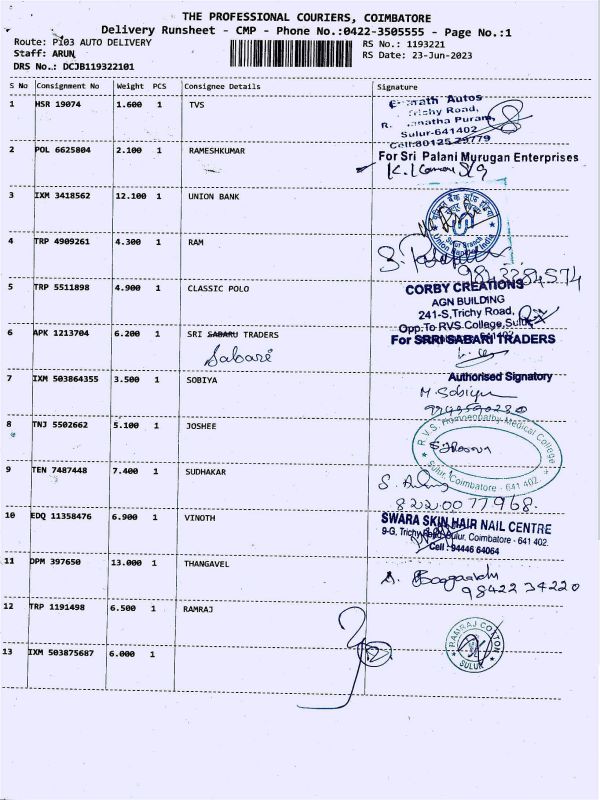 THE PROFESSIONAL COURIERS, COIMBATORE
Delivery Runsheet - CMP - Phone No.:0422-3505555 - Page No.:1
Route: P103 AUTO DELIVERY
RS No.: 1193221
Staff: ARUN
RS Date: 23-Jun-2023
DRS No.: DCJB119322101
S No Consignment No Weight PCS Consignee Details Signature
1 HSR 19074 1.600 1 TVS
Autos
Trichy Road,
Sulur-641402
2 POL 6625804 2.100 1 RAMESHKUMAR
For Sri Palani Murugan Enterprises
3 IXM 3418562 12.100 1 UNION BANK
Sulur Branch
Union Bank of India
4 TRP 4909261 4.300 1 RAM
5 TRP 5511898 4.900 1 CLASSIC POLO
CORBY CREATIONS
AGN BUILDING
241-S,Trichy Road,
Opp.To RVS College,Sulur
6 APK 1213704 6.200 1 SRI SABARU TRADERS
Sabari
For SRRI SABARI TRADERS
Authorised Signatory
7 IXM 503864355 3.500 1 SOBIYA
M. Sobiya
8 TNJ 5502662 5.100 1 JOSHEE
R.V.S. Homoeopathy Medical College
Sulur, Coimbatore - 641 402.
9 TEN 7487448 7.400 1 SUDHAKAR
8220077968.
10 EDQ 11358476 6.900 1 VINOTH
SWARA SKIN HAIR NAIL CENTRE
9-G, Trichy Road, Sulur, Coimbatore - 641 402.
Cell : 94446 64064
11 DPM 397650 13.000 1 THANGAVEL
98422 34220
12 TRP 1191498 6.500 1 RAMRAJ
RAMRAJ COTTON
SULUR
12
13 IXM 503875687 6.000 1